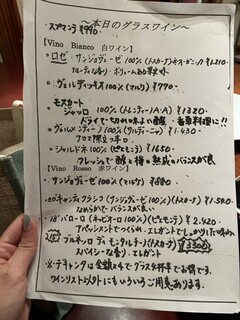 ～本日のグラスワイン～
・スプマンテ ¥990
【Vino Bianco 白ワイン】
・ロゼ サンジョヴェーゼ 100% (トスカーナ) ¥1,210
フルーティな香り・ボリュームある果実味
・ヴェルディッキオ 100% (マルケ) ¥770
・モスカート
ジャッロ 100% (トレンティーノA・A) ¥1320
ドライで切れの良い酸
・ヴェルメンティーノ 100% (サルデーニャ) ¥1,430
アロマ際立つ辛口
・シャルドネ 100% (ピエモンテ) ¥1,650
フレッシュで酸と樽と熟成のバランスが良
【Vino Rosso 赤ワイン】
・サンジョヴェーゼ 100% (マルケ) ¥880
・キャンティクラシコ (サンジョヴェーゼ100%) (トスカーナ) ¥1,540
なめらかでバランスが良い
・18' バローロ (ネビオーロ100%) (ピエモンテ) ¥2,420
エレガントでしっかりした味わい
ブルネッロ ディ モンタルチーノ (トスカーナ) ¥3300
スパイシーな香り、エレガント
※デキャンタは金額×4でグラス4杯半でお得です。
ワインリストメクトにもいろいろご用意あります。